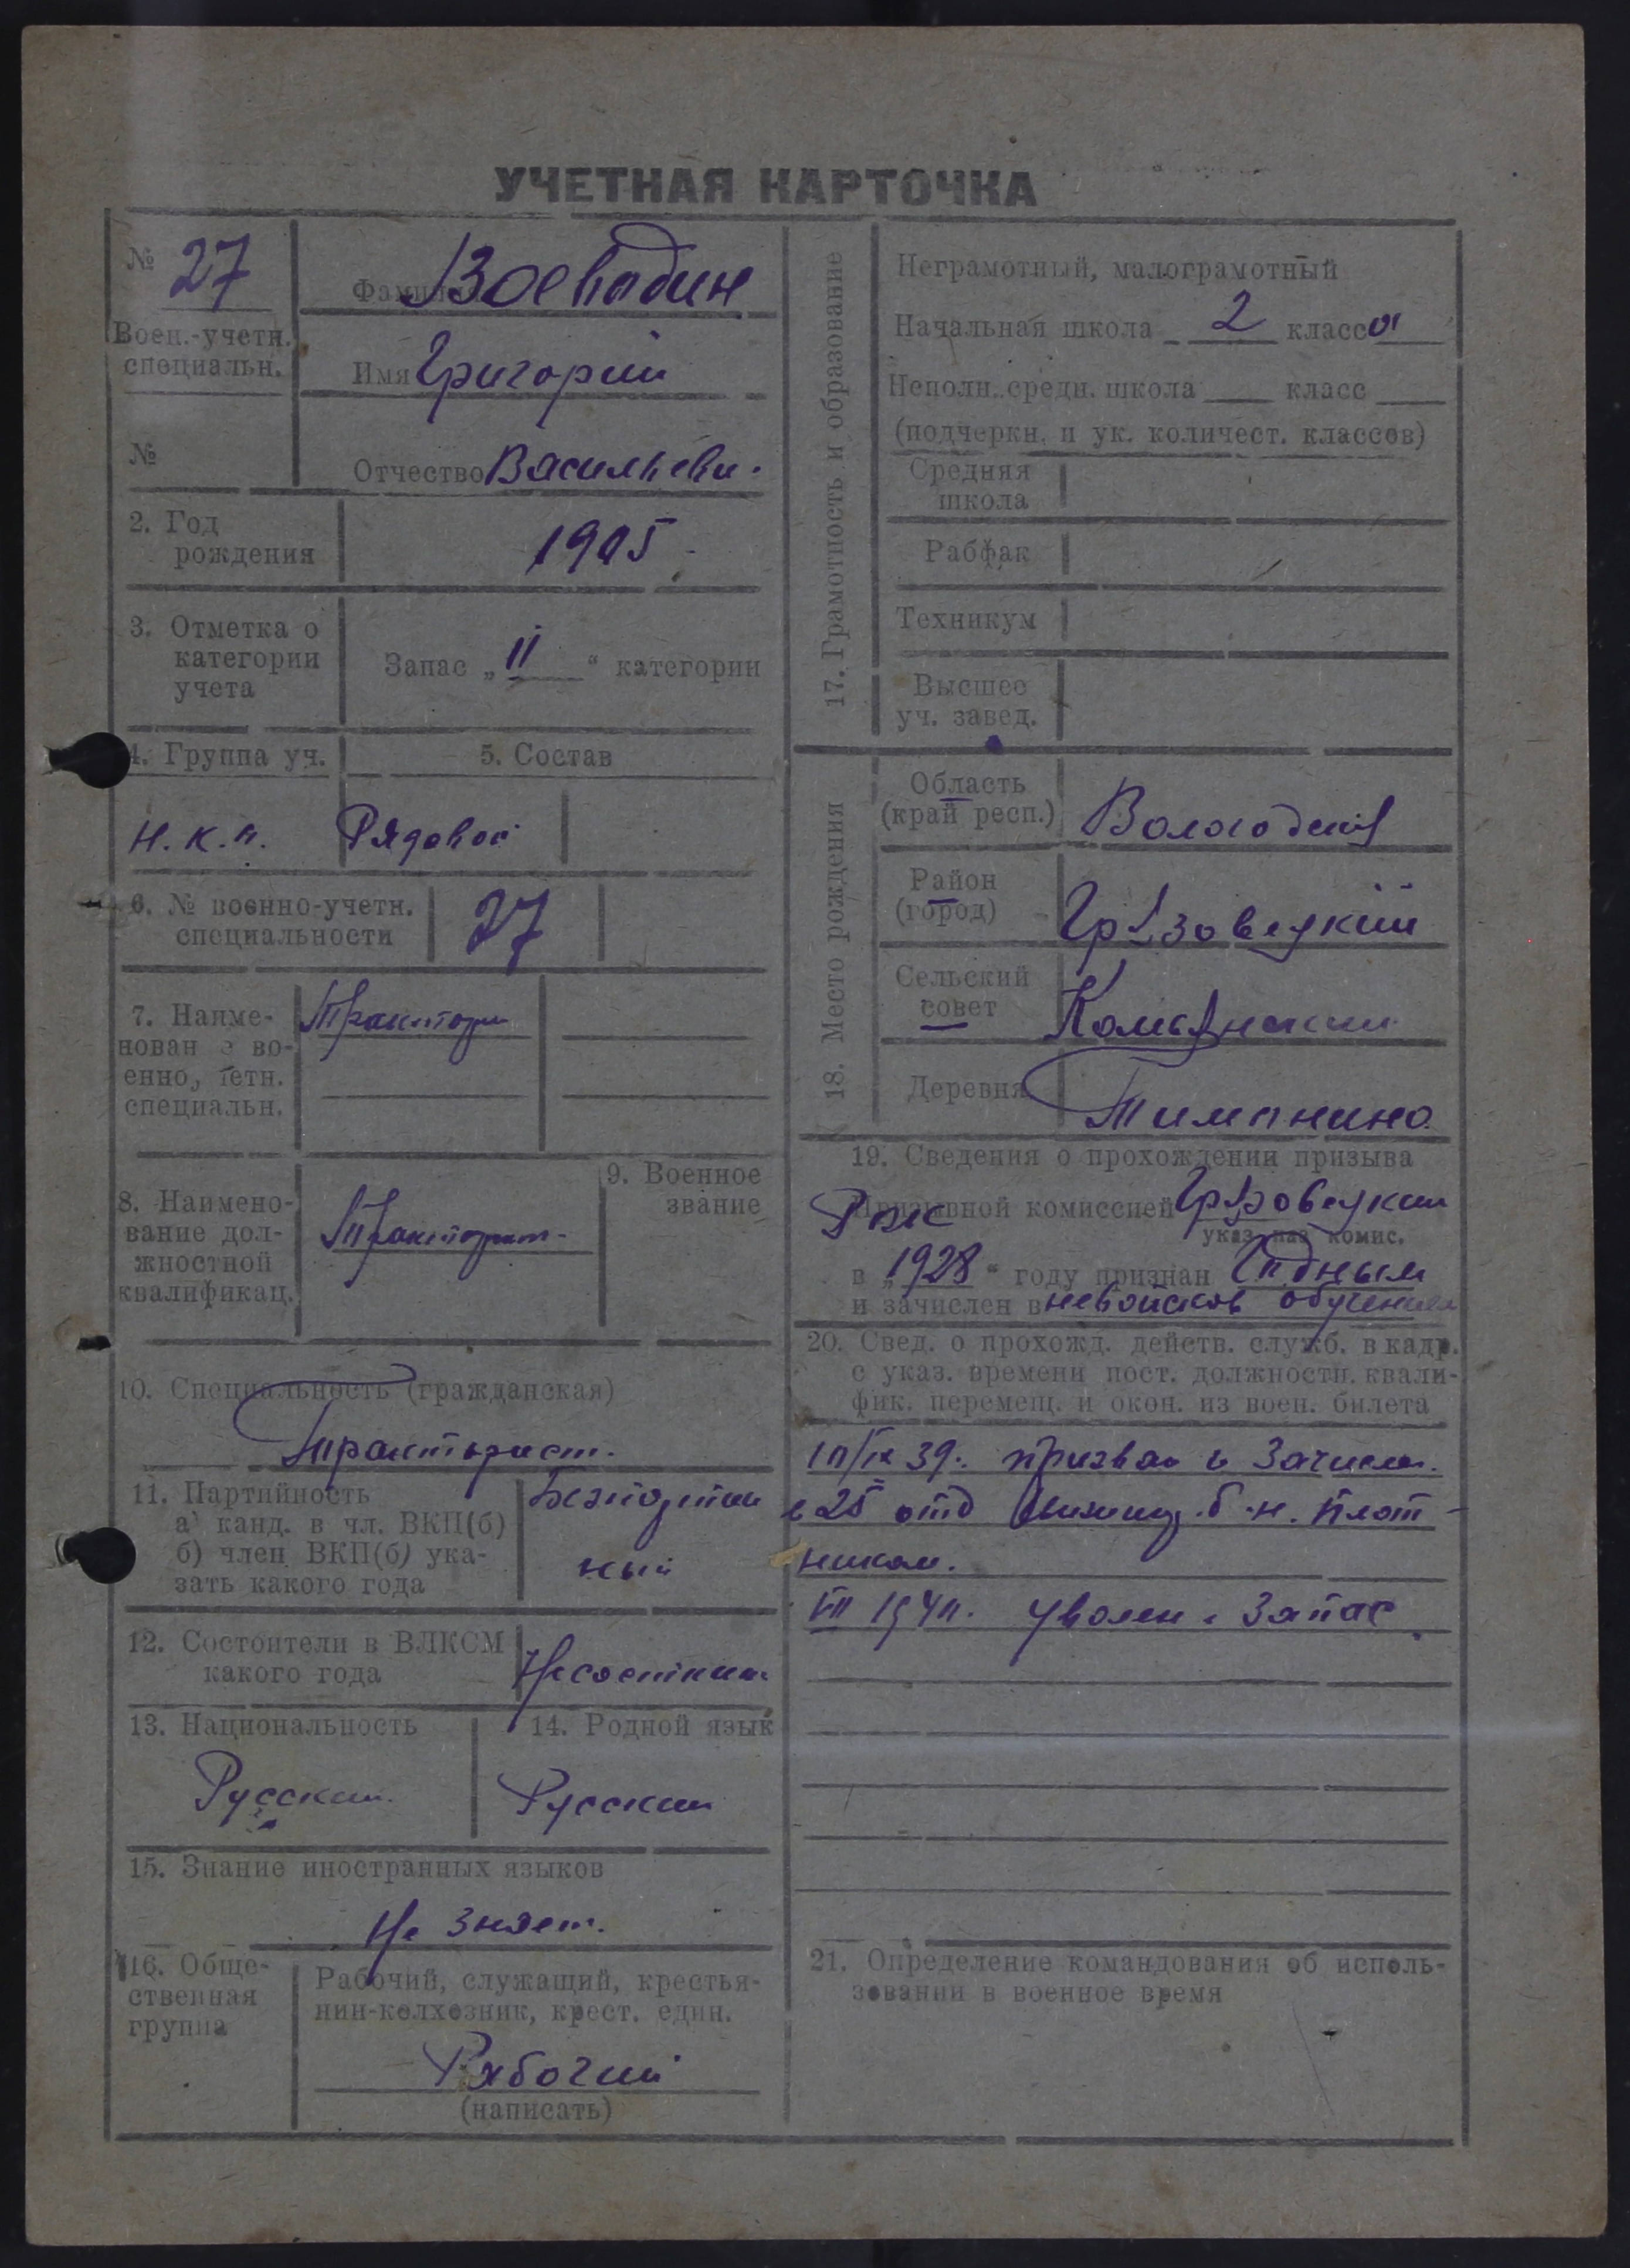 УЧЕТНАЯ КАРТОЧКА
№ 27
Воен.-учетн.
специальн.
№
Фамилия Воевадин
Имя Григорий
Отчество Васильеви.
2. Год
рождения
1905
3. Отметка о
категории
учета
Запас „ II “ категории
4. Группа уч.
5. Состав
Н.К.А.
Рядовой
6. № военно-учетн.
специальности
27
7. Наиме-
нован е во-
енно, четн.
специальн.
8. Наимено-
вание дол-
жностной
квалификац.
9. Военное
звание
10. Специальность (гражданская)
Тракторист.
11. Партийность
а) канд. в чл. ВКП(б)
б) член ВКП(б) ука-
зать какого года
Безпартий
ный
12. Состоит ли в ВЛКСМ
какого года
13. Национальность
Русский
14. Родной язык
Русский
15. Знание иностранных языков
Не знает.
16. Обще-
ственная
группа
Рабочий, служащий, крестья-
нин-колхозник, крест. един.
Рабочий
(написать)
17. Грамотность и образование
Неграмотный, малограмотный
Начальная школа 2 класса
Неполн. средн. школа ___ класс ___
(подчеркн. и ук. количест. классов)
Средняя
школа
Рабфак
Техникум
Высшее
уч. завед.
18. Место рождения
Область
(край респ.)
Вологодская
Район
(город)
Грязовецкий
Сельский
совет
Комьянский
Деревня
Тимонино
19. Сведения о прохождении призыва
Призывной комиссией Грязовецкий
указ. наз. комис.
в „1928“ году признан Годным
и зачислен в невойсков обучения
20. Свед. о прохожд. действ. служб. в кадр.
с указ. времени пост. должностн. квали-
фик. перемещ. и окон. из воен. билета
10/IX 39. призван и зачислен.
в 25 отд б-н. плот-
ником.
VII 1940. уволен в запас
21. Определение командования об исполь-
зовании в военное время